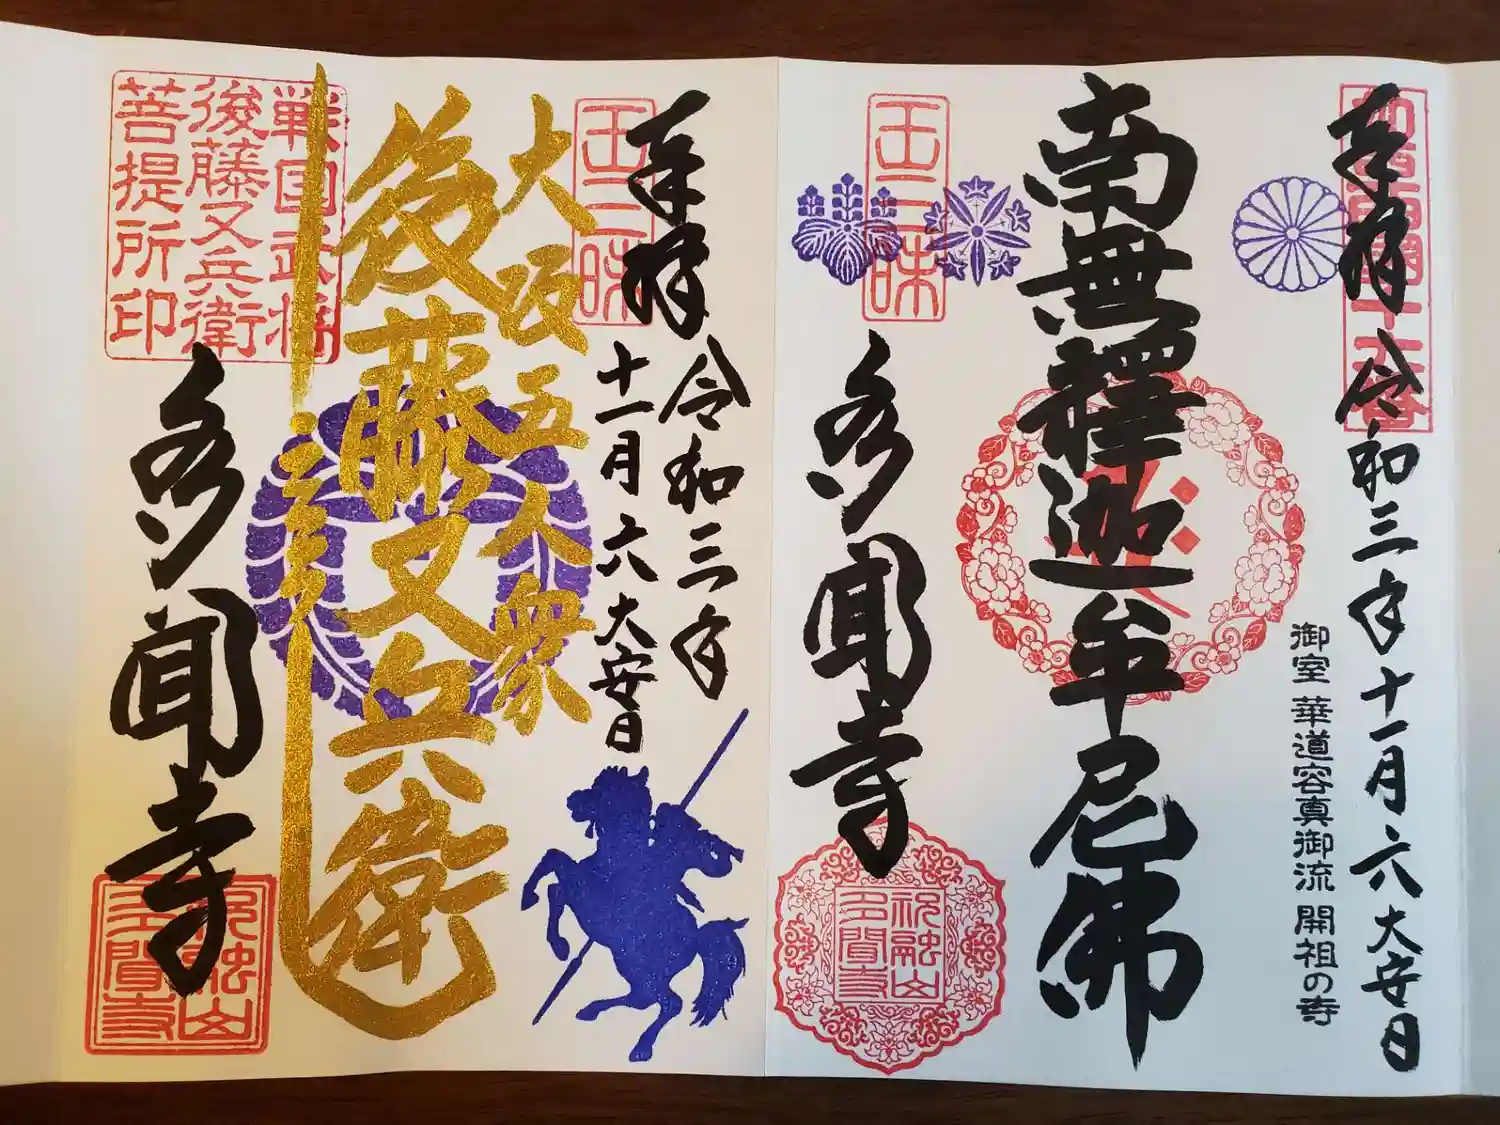 奉拝 令和三年十一月六大安日
御室 華道容真御流 開祖の寺
南無釋迦牟尼佛
王三昧
多聞寺
祝融山
多聞寺
奉拝 令和三年
十一月六大安日
王三昧
大坂五人衆
後藤又兵衛
戦国武将
後藤又兵衛
菩提所印
多聞寺
祝融山
多聞寺